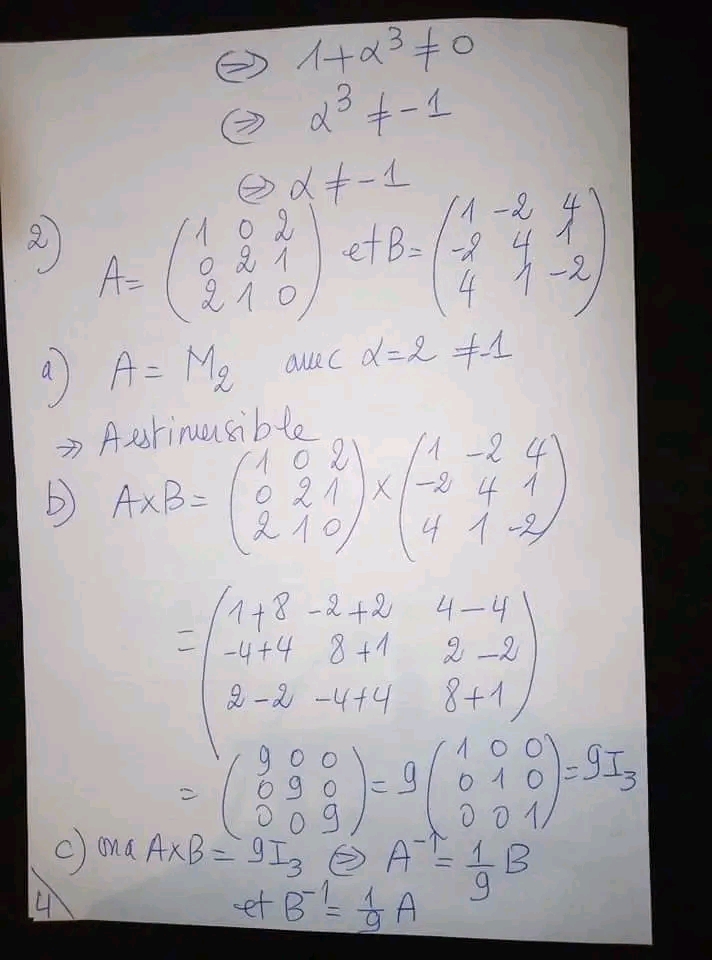 ⇔ 1+α³ ≠ 0
⇔ α³ ≠ -1
⇔ α ≠ -1
2) A = (1 0 2 ; 0 2 1 ; 2 1 0) et B = (1 -2 4 ; -2 4 1 ; 4 1 -2)
a) A = M₂ avec α = 2 ≠ -1
⇒ A est inversible
b) A×B = (1 0 2 ; 0 2 1 ; 2 1 0) × (1 -2 4 ; -2 4 1 ; 4 1 -2)
= (1+8 -2+2 4-4 ; -4+4 8+1 2-2 ; 2-2 -4+4 8+1)
= (9 0 0 ; 0 9 0 ; 0 0 9) = 9 (1 0 0 ; 0 1 0 ; 0 0 1) = 9I₃
c) on a A×B = 9I₃ ⇔ A⁻¹ = 1/9 B
et B⁻¹ = 1/9 A
4